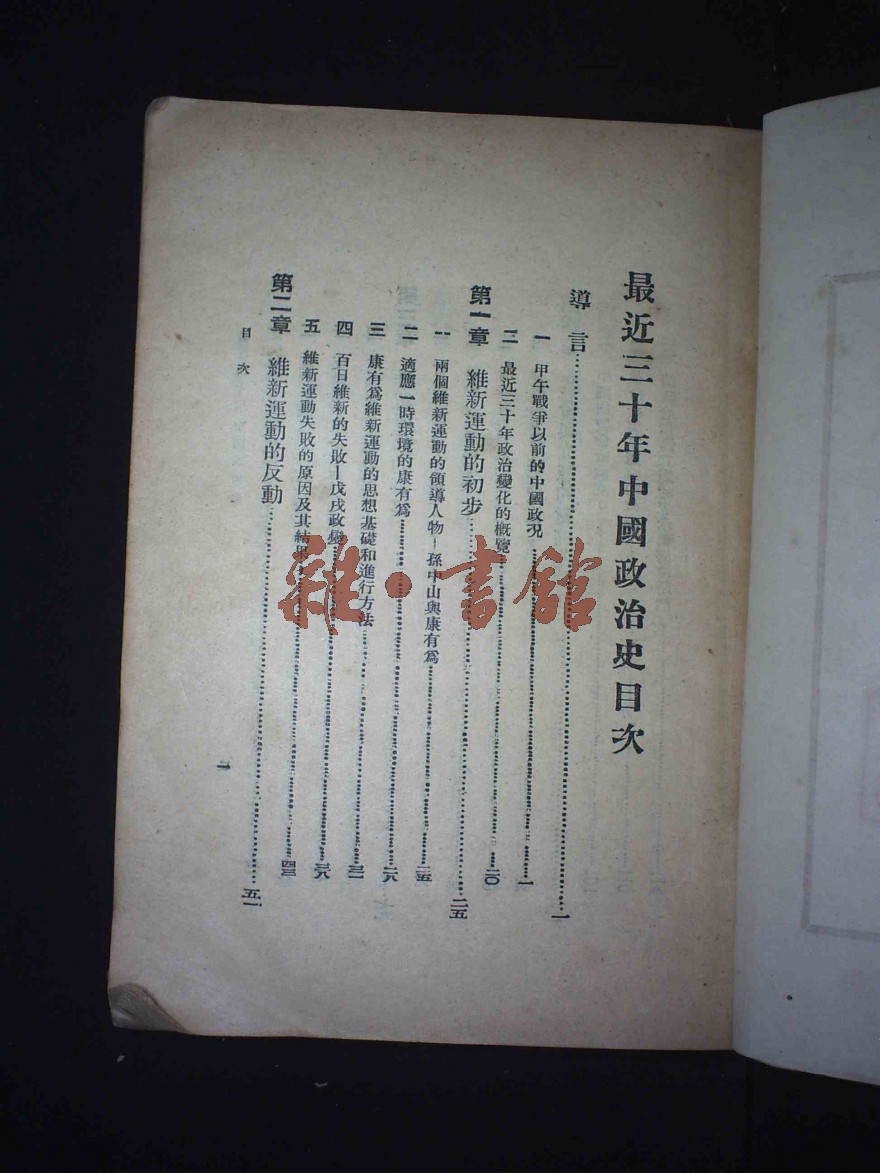 最近三十年中國政治史目次
導言……一
一 甲午戰爭以前的中國政況……一
二 最近三十年政治變化的概覽……二〇
第一章 維新運動的初步……二五
一 兩個維新運動的領導人物—孫中山與康有爲……二五
二 適應一時環境的康有爲……二八
三 康有爲維新運動的思想基礎和進行方法……三二
四 百日維新的失敗—戊戌政變……三八
五 維新運動失敗的原因及其結果……四三
第二章 維新運動的反動……五一
目次
一
雜·書館